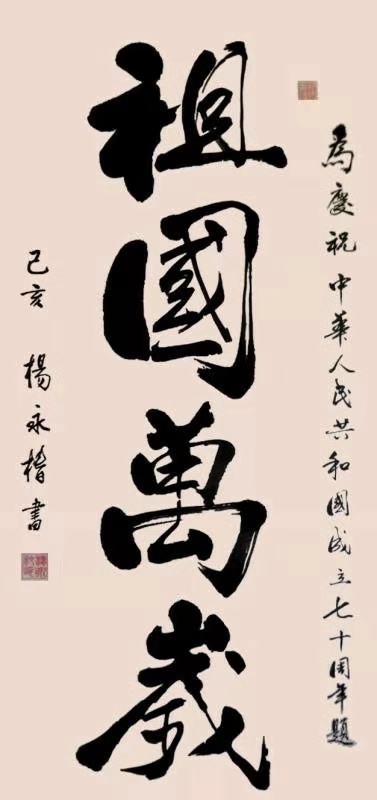 為慶祝中華人民共和國成立七十周年題
祖國萬歲
己亥 楊永楷書